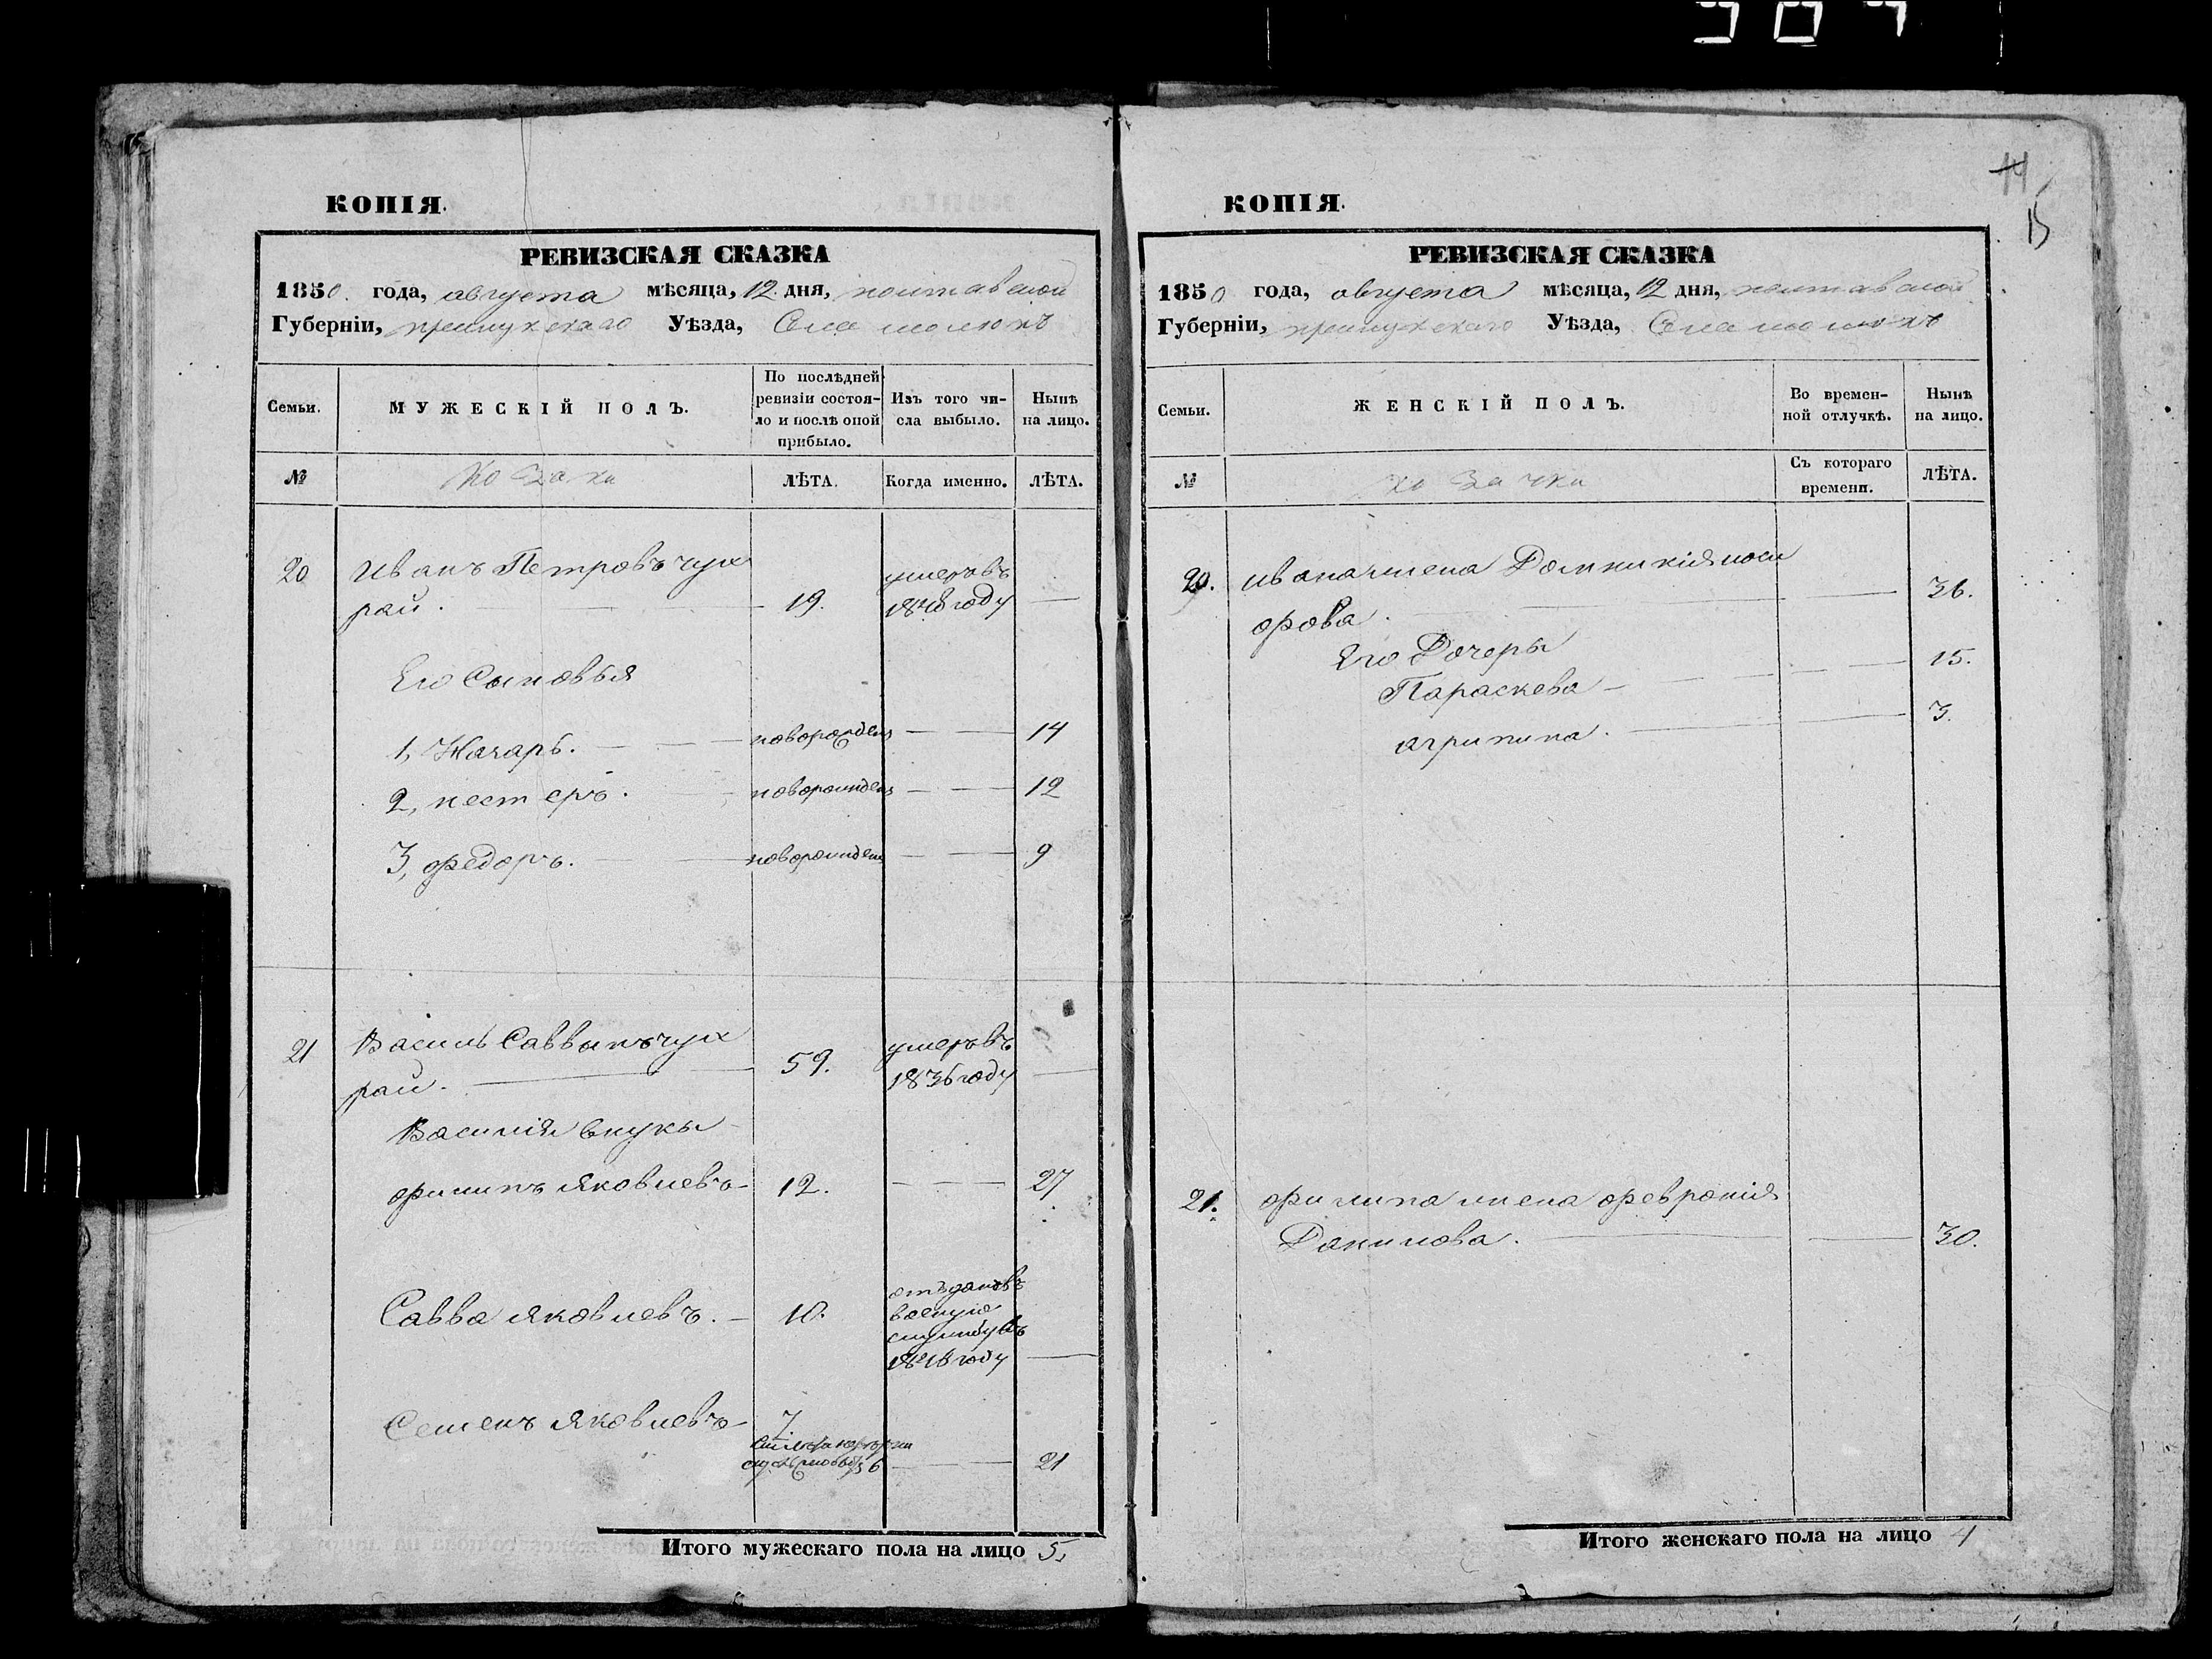 КОПІЯ.
РЕВИЗСКАЯ СКАЗКА
1850. года, августа мѣсяца, 12. дня, полтавской
Губерніи, прилуцкаго Уѣзда, Села
Семьи.
МУЖЕСКІЙ ПОЛЪ.
По послѣдней ревизіи состоя-
ло и послѣ оной прибыло.
Изъ того чи-
сла выбыло.
Нынѣ
на лицо.
№
Козаки
ЛѢТА.
Когда именно.
ЛѢТА.
20 Иванъ Петровъ чух
рай. 19. умеръ въ
1848 году
Его Сыновья
1, Назарь. новорожден 14
2, нестеръ. новорожден 12
3, федоръ. новорожден 9
21 Василь Саввинъ чух
рай. 59. умеръ въ
1836 году
Василія внуки
филипъ Яковлевъ 12. 27
Савва Яковлевъ. 10. отъданъ въ
военую
службу въ
году
Семенъ Яковлевъ 7.
21
Итого мужескаго пола на лицо 5,
КОПІЯ.
14
15
РЕВИЗСКАЯ СКАЗКА
1850 года, августа мѣсяца, 12 дня, полтавской
Губерніи, прилуцкаго Уѣзда, Села
Семьи.
ЖЕНСКІЙ ПОЛЪ.
Во времен-
ной отлучкѣ.
Нынѣ
на лицо.
№
козачки
Съ котораго
времени.
ЛѢТА.
20. ивана жена Домникія ники
форова. 36.
Его Дочеры
Параскева 15.
агрипина. 3.
21. филипа жена февронія
Данилова. 30.
Итого женскаго пола на лицо 4